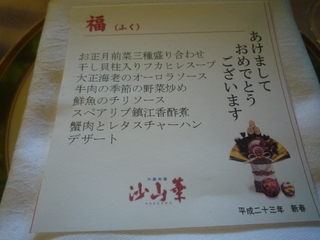 福(ふく)
お正月前菜三種盛り合わせ
干し貝柱入りフカヒレスープ
大正海老のオーロラソース
牛肉の季節の野菜炒め
鮮魚のチリソース
スペアリブ鎮江香酢煮
蟹肉とレタスチャーハン
デザート
あけまして
おめでとう
ございます
沙山華
平成二十三年 新春